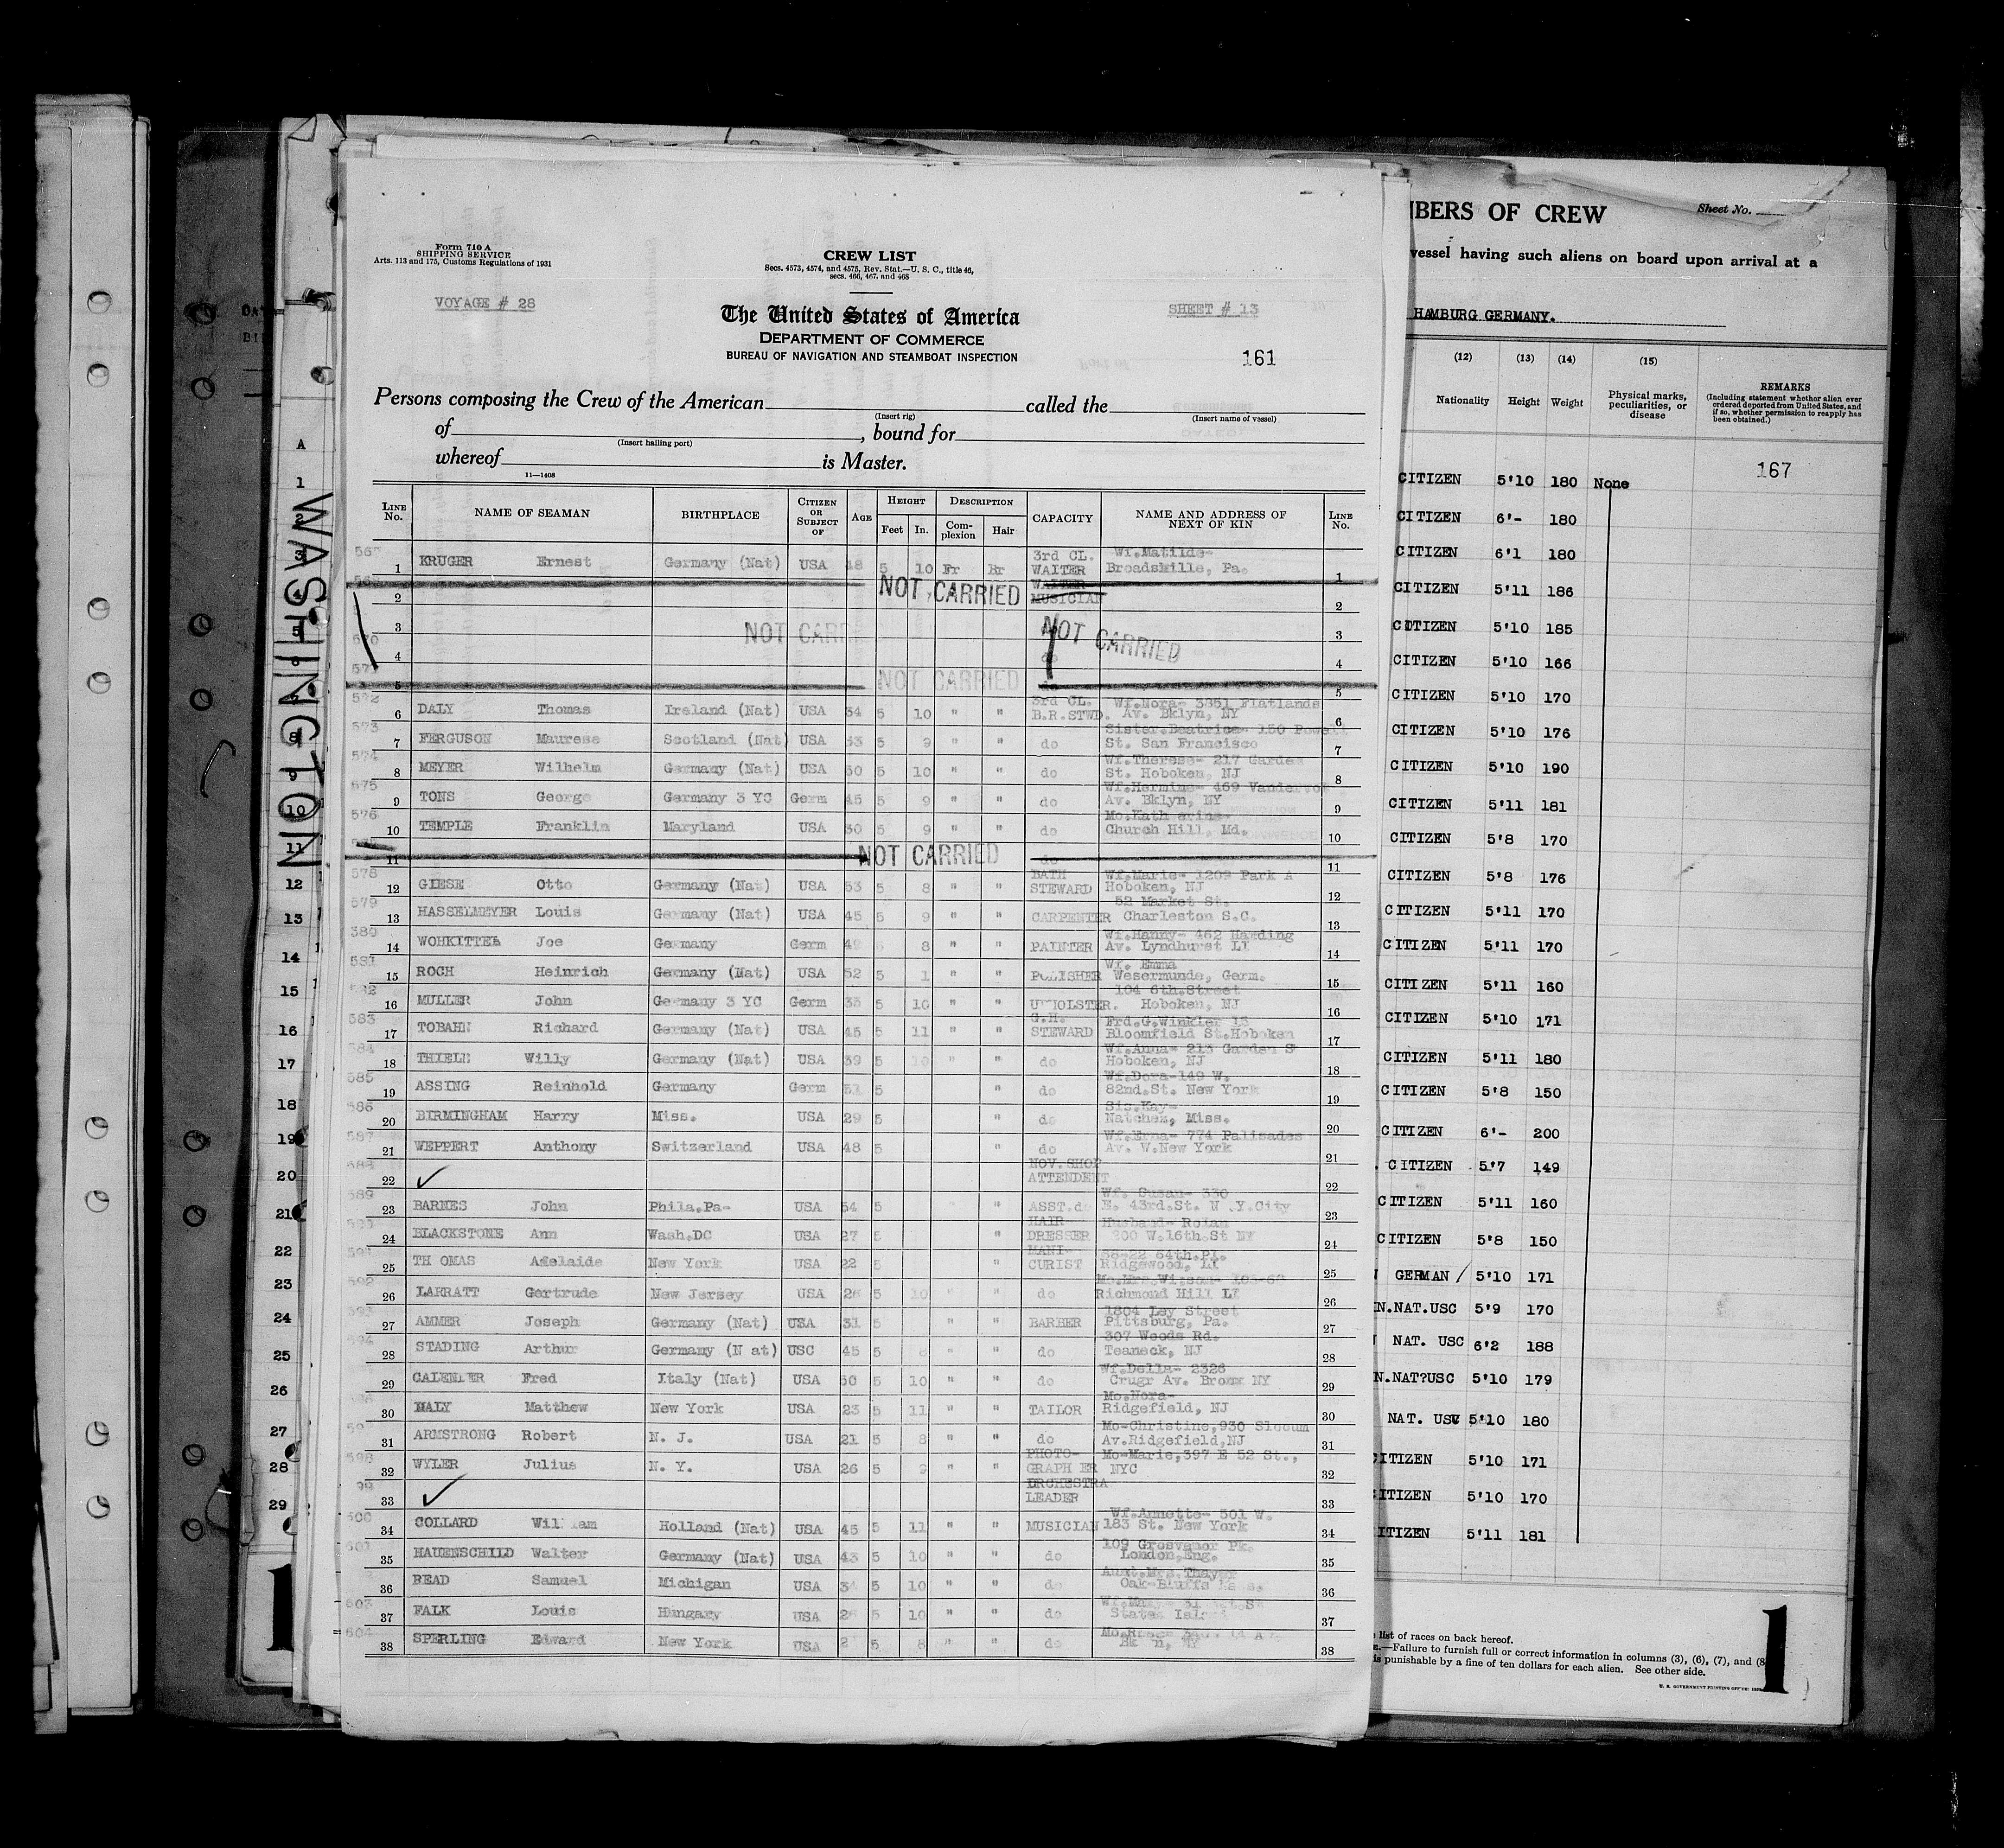 Form 710 A
SHIPPING SERVICE
Arts. 113 and 175, Customs Regulations of 1931
CREW LIST
Secs. 4573, 4574, and 4575, Rev. Stat.—U. S. C., title 46,
secs. 466, 467, and 468
VOYAGE # 28
The United States of America
SHEET # 13
DEPARTMENT OF COMMERCE
BUREAU OF NAVIGATION AND STEAMBOAT INSPECTION
161
Persons composing the Crew of the American called the
(Insert rig) (Insert name of vessel)
of , bound for
(Insert hailing port)
whereof is Master.
11—1408
LINE No. NAME OF SEAMAN BIRTHPLACE CITIZEN OR SUBJECT OF AGE HEIGHT Feet In. DESCRIPTION Complexion Hair CAPACITY NAME AND ADDRESS OF NEXT OF KIN LINE No.
1 KRUGER Ernest Germany (Nat) USA 48 5 10 Fr Br 3rd CL. WAITER Wf.Matilda- Broadsville, Pa. 1
2 NOT CARRIED WAITER MUSICIAN 2
3 NOT CARR NOT CARRIED 3
4 do 4
5 NOT CARRIED 5
572 6 DALY Thomas Ireland (Nat) USA 34 5 10 " " 3rd CL. B.R.STWD. Wf.Nora- 3851 Flatlands Av. Bklyn, NY 6
573 7 FERGUSON Maurese Scotland (Nat) USA 33 5 9 " " do Sister.Beatrice- 150 Powell St. San Francisco 7
574 8 MEYER Wilhelm Germany (Nat) USA 30 5 10 " " do Wf.Therese- 217 Garden St. Hoboken, NJ 8
575 9 TONS George Germany 3 YC Germ 45 5 9 " " do Wf.Hermine- 469 Av. Bklyn, NY 9
576 10 TEMPLE Franklin Maryland USA 30 5 9 " " do Mo.Kath erine- Church Hill, Md. 10
11 NOT CARRIED do 11
578 12 GIESE Otto Germany (Nat) USA 53 5 8 " " BATH STEWARD Wf.Marie- 1209 Park A Hoboken, NJ 12
579 13 HASSELMEYER Louis Germany (Nat) USA 45 5 9 " " CARPENTER 52 Market St. Charleston S.C. 13
580 14 WOHKITTEL Joe Germany Germ 49 8 " " PAINTER Wf.Hanny- 462 Harding Av. Lyndhurst LI 14
581 15 ROCH Heinrich Germany (Nat) USA 52 5 1 " " POLISHER Wf. Emma Wesermunde, Germ. 15
582 16 MULLER John Germany 3 YC Germ 33 5 10 " " UPHOLSTER. 104 6th.Street Hoboken, NJ 16
583 17 TOBAHN Richard Germany (Nat) USA 45 5 11 " " G.H. STEWARD Frd.G.Winkler 13 Bloomfield St.Hoboken 17
584 18 THIELE Willy Germany (Nat) USA 39 5 10 " " do Wf.Anna- 213 Garden S Hoboken, NJ 18
585 19 ASSING Reinhold Germany Germ 51 5 " do Wf.Dora-149 W. 82nd.St. New York 19
586 20 BIRMINGHAM Harry Miss. USA 29 5 " do Sis.Kay- Natchez, Miss. 20
587 21 WEPPERT Anthony Switzerland USA 48 5 " do Wf.Erna- 774 Palisades Av. W.New York 21
588 22 NOV.SHOP ATTENDENT 22
589 23 BARNES John Phila.Pa- USA 54 5 " ASST.d. Wf. Susan- 330 E. 43rd.St. N .Y.City 23
24 BLACKSTONE Ann Wash.DC USA 27 5 " HAIR DRESSER Husband- Rolan 200 W.16th.St NY 24
591 25 TH OMAS Adelaide New York USA 22 5 " MANI- CURIST 58-22 64th.Pl. Ridgewood, LI 25
592 26 LARRATT Gertrude New Jersey USA 26 5 10 " " do Richmond Hill LI 26
593 27 AMMER Joseph Germany (Nat) USA 31 5 " " BARBER 1804 Ley Street Pittsburg, Pa. 27
594 28 STADING Arthur Germany (N at) USC 45 5 " " do 307 Woods Rd. Teaneck, NJ 28
29 CALENDER Fred Italy (Nat) USA 50 5 10 " " do Wf.Della- 2326 Crugr Av. Bronx NY 29
30 MALY Matthew New York USA 23 5 11 " " TAILOR Mo.Nora- Ridgefield, NJ 30
31 ARMSTRONG Robert N. J. USA 21 5 8 " " do Mo-Christine,930 Slocum Av.Ridgefield,NJ 31
598 32 WYLER Julius N. Y. USA 26 5 9 " " PHOTO- GRAPH ER Mo-Marie,397 E 52 St., NYC 32
33 ORCHESTRA LEADER 33
34 COLLARD William Holland (Nat) USA 45 5 11 " " MUSICIAN Wf.Annette- 501 W. 183 St. New York 34
601 35 HAUENSCHILD Walter Germany (Nat) USA 43 5 10 " " do 109 Grosvenor Pk. London,Eng. 35
36 READ Samuel Michigan USA 5 10 " " do Aunt.Mrs.Thayer Oak-Bluffs 36
603 37 FALK Louis Hungary USA 5 10 " " do 37
604 38 SPERLING Edward New York USA 5 8 " " do 38
WASHINGTON
A
1
2
3
4
5
6
7
8
9
10
11
12
13
14
15
16
17
18
19
20
21
22
23
24
25
26
27
28
29
1
MBERS OF CREW Sheet No.
vessel having such aliens on board upon arrival at a
HAMBURG GERMANY.
(12) (13) (14) (15)
Nationality Height Weight Physical marks, peculiarities, or disease
REMARKS
(Including statement whether alien ever
ordered deported from United States, and
if so, whether permission to reapply has
been obtained.)
167
CITIZEN 5'10 180 None
CITIZEN 6'- 180
CITIZEN 6'1 180
CITIZEN 5'11 186
CITIZEN 5'10 185
CITIZEN 5'10 166
CITIZEN 5'10 170
CITIZEN 5'10 176
CITIZEN 5'10 190
CITIZEN 5'11 181
CITIZEN 5'8 170
CITIZEN 5'8 176
CITIZEN 5'11 170
CITIZEN 5'11 170
CITIZEN 5'11 160
CITIZEN 5'10 171
CITIZEN 5'11 180
CITIZEN 5'8 150
CITIZEN 6'- 200
CITIZEN 5'7 149
CITIZEN 5'11 160
CITIZEN 5'8 150
GERMAN / 5'10 171
N.NAT.USC 5'9 170
NAT. USC 6'2 188
N.NAT?USC 5'10 179
NAT. USC 5'10 180
CITIZEN 5'10 171
CITIZEN 5'10 170
CITIZEN 5'11 181
list of races on back hereof.
—Failure to furnish full or correct information in columns (3), (6), (7), and (8)
is punishable by a fine of ten dollars for each alien. See other side.
U. S. GOVERNMENT PRINTING OFFICE
1